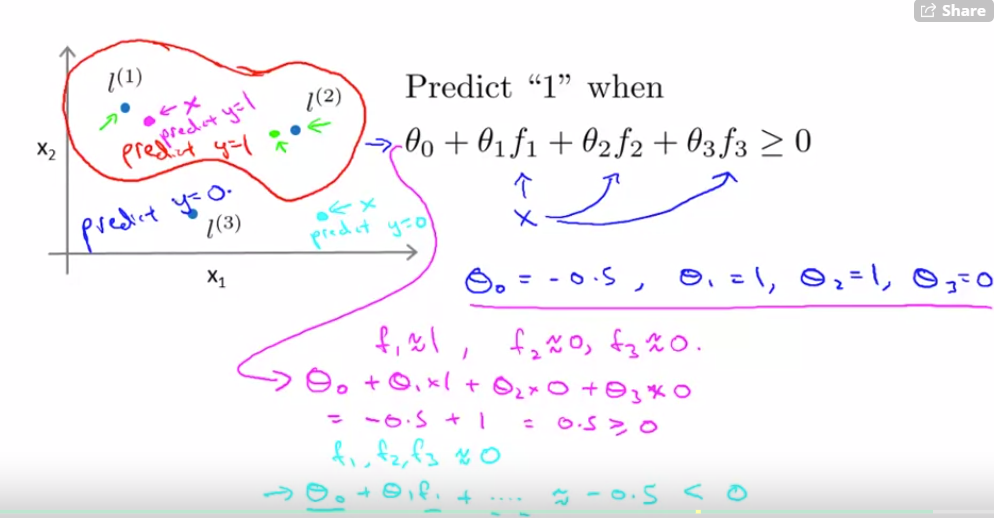 Share
l^(1)
x
predict y=1
l^(2)
predict y=1
x₂
predict y=0.
l^(3)
x
predict y=0
x₁
Predict “1” when
θ₀ + θ₁f₁ + θ₂f₂ + θ₃f₃ ≥ 0
x
θ₀ = -0.5, θ₁=1, θ₂=1, θ₃=0
f₁≈1, f₂≈0, f₃≈0.
θ₀ + θ₁×1 + θ₂×0 + θ₃×0
= -0.5 + 1 = 0.5 ≥ 0
f₁, f₂, f₃ ≈ 0
→ θ₀ + θ₁f₁ + .... ≈ -0.5 < 0